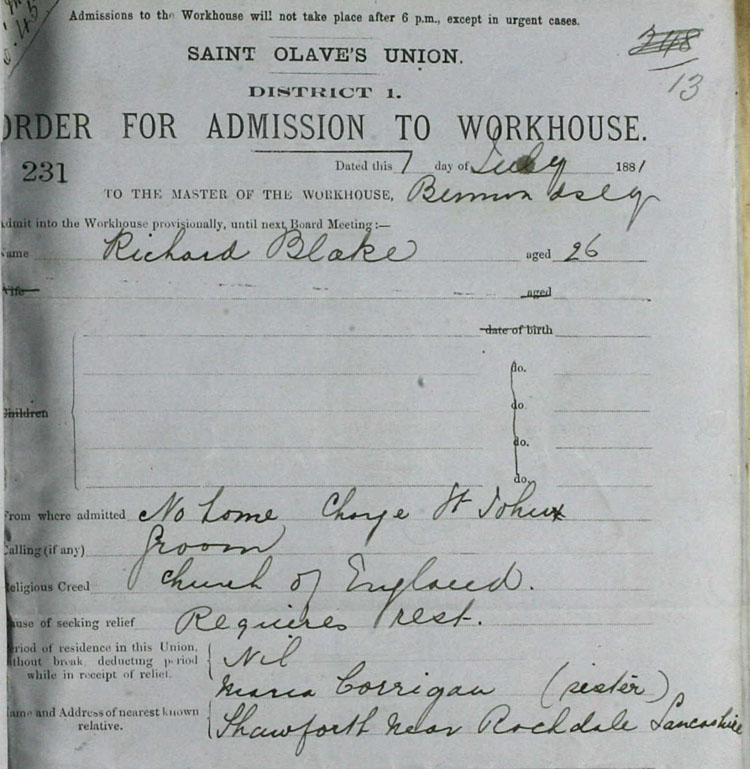 Admissions to the Workhouse will not take place after 6 p.m., except in urgent cases.
SAINT OLAVE'S UNION.
248
13
DISTRICT 1.
ORDER FOR ADMISSION TO WORKHOUSE.
231
Dated this 7 day of July 1881
TO THE MASTER OF THE WORKHOUSE, Bermondsey
Admit into the Workhouse provisionally, until next Board Meeting:—
Name Richard Blake aged 26
Wife aged
date of birth
do.
Children do
do.
do.
From where admitted No home Charge St Johns
Calling (if any) Groom
Religious Creed Church of England.
Cause of seeking relief Requires rest.
Period of residence in this Union,
without break, deducting period
while in receipt of relief. Nil
Maria Corrigan (sister)
Name and Address of nearest known
relative. Shawforth near Rochdale Lancashire